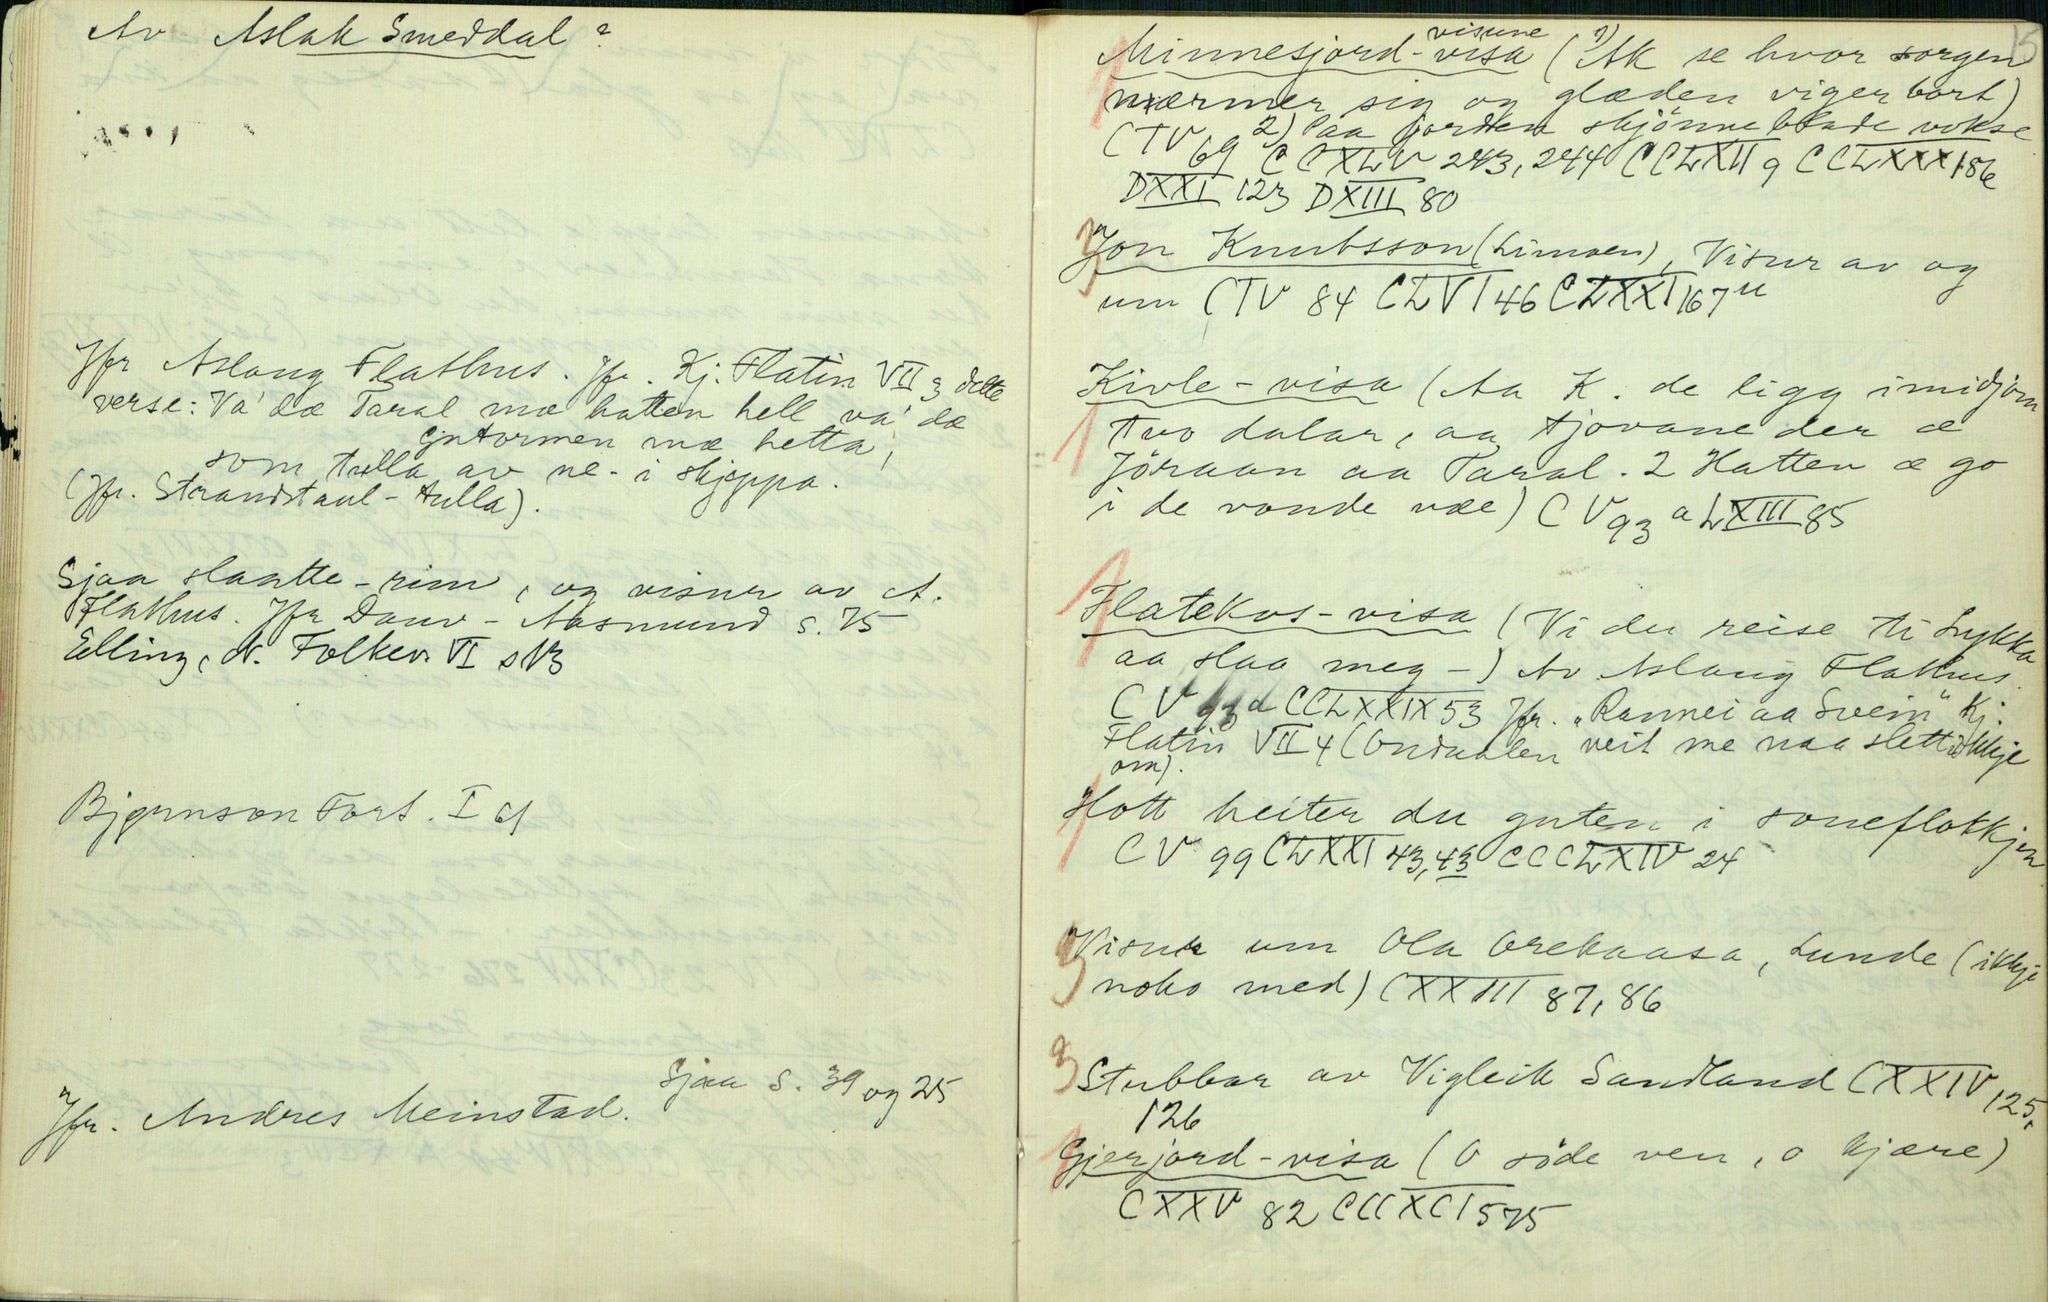 Av Aslak Smeddal?
Jfr Aslaug Flathus. Jfr. Kj. Flatin VII 3 dette
verse: Va' dæ Taral mæ hatten hell va' dæ
Guttormen mæ hetta,
som tulla av ne- i skjeppa.
(Jfr. Strandstaul-tulla).
Sjaa slaatte-rim, og visur av A.
Flathus. Jfr Dauv-Aasmund s. 75
Elling, N. Folkev. VI s 13
Bjørnson Fort. I 61
Sjaa s. 39 og 25
Jfr. Andres Meinstad.
15
visune
Minnesjord-visa (1) Ak se hvor sorgen
nærmer sig og glæden viger bort)
CIV 69 2) Paa jorden skjönne blade vokse
CCXLV 243, 244 CCLXII 9 CCLXXXI 86
DXXI 123 DXIII 80
Jon Knutsson (Limoen), Visur av og
um CIV 84 CLVI 46 CLXXI 167 u
Kivle-visa (Aa K. de ligg imidjom
tvo dalar, aa tjovane der æ
Jöraan aa Taral. 2 Hatten æ go
i de vonde væe) CV 93 a LXIII 85
Flatekos-visa (Vi du reise ti Lykka
aa slaa meg -) Av Aslaug Flathus.
CV 93 d CCLXXIX 53 Jfr. "Rannei aa Svein" Kj.
Flatin VII 4 (Ondaalen veit me naa slett ikkje
om).
Hott heiter du guten i soneflokkjen
CV 99 CLXXI 43, 43 CCCLXIV 24
Visur um Ola Orekaasa, Lunde (ikkje
noko med) CXXIII 87, 86
Stubbar av Vigleik Sandland CXXIV 125,
126
Gjerjord-visa (O söde ven, o kjære)
CXXV 82 CCCXCI 575